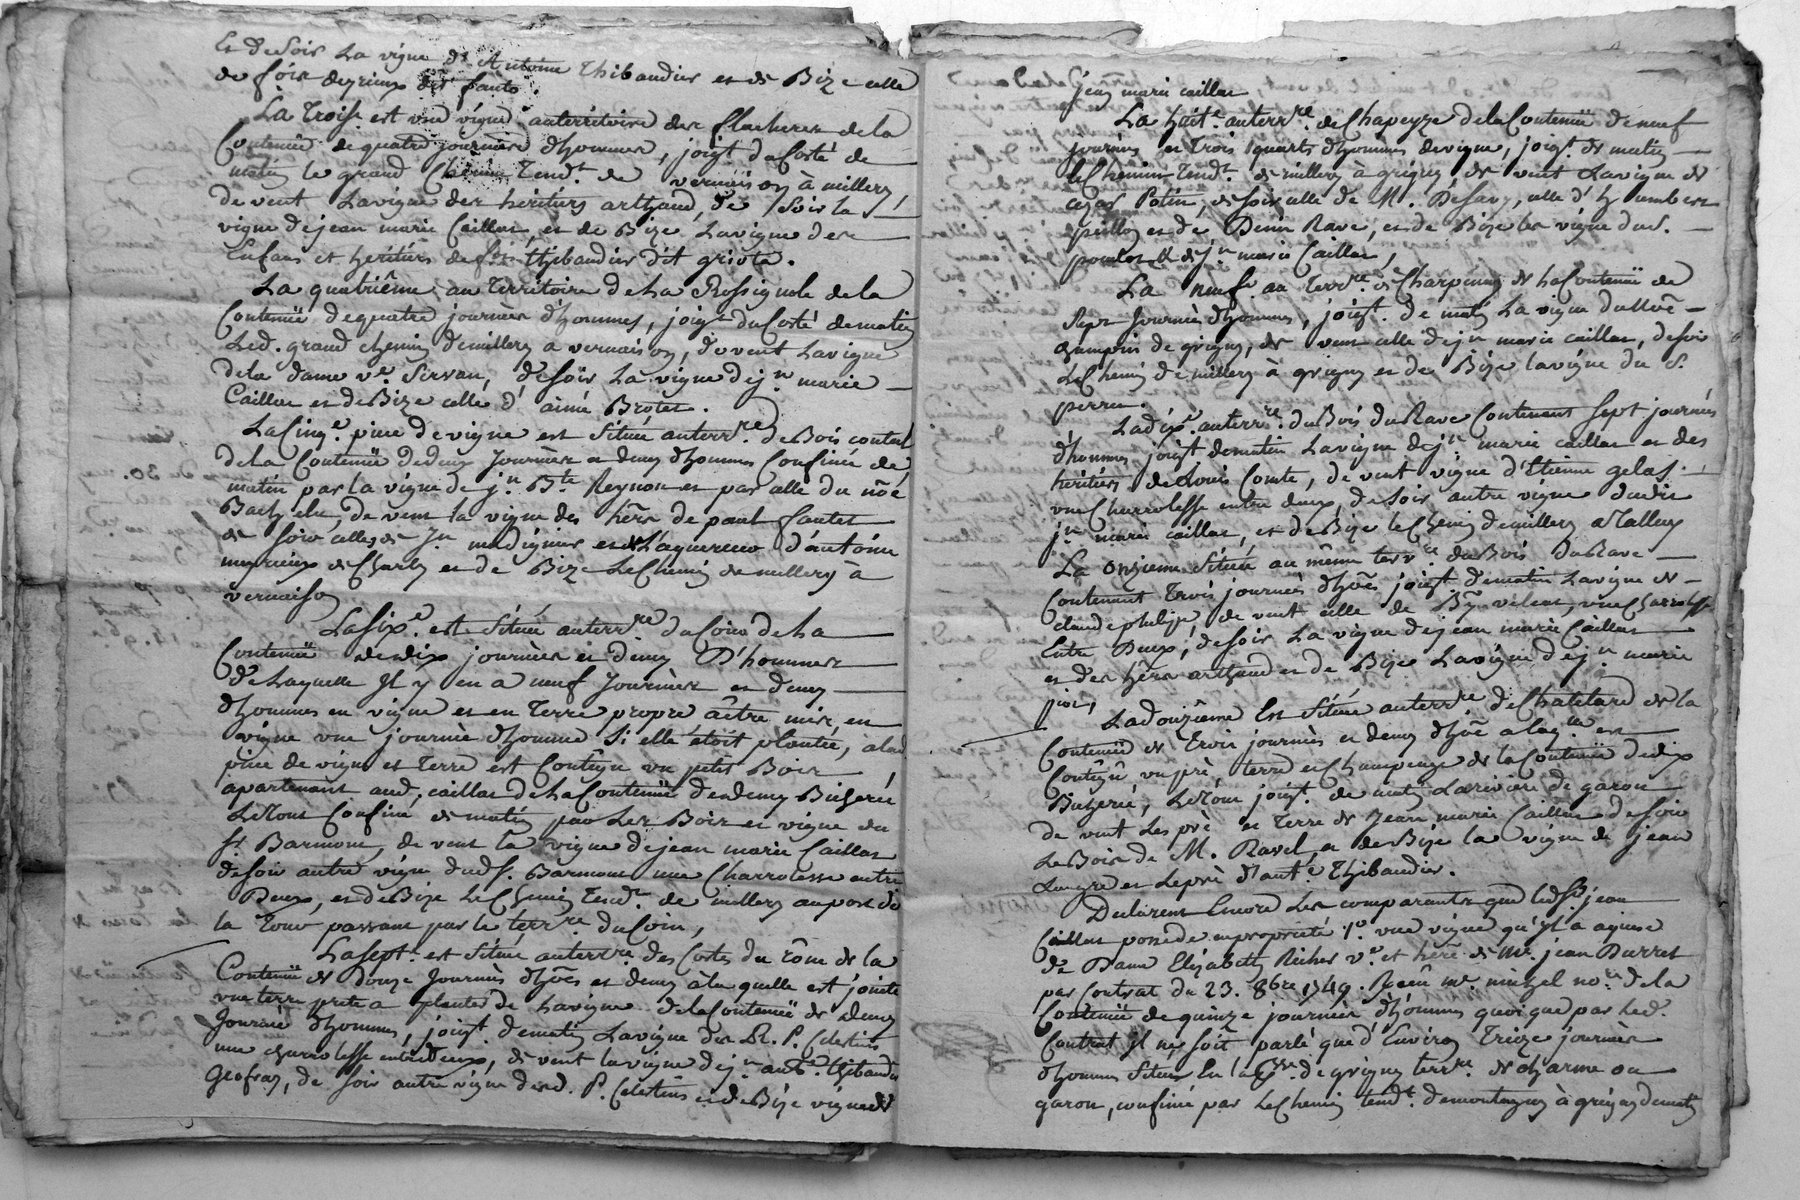 Et de soir La vigne de Antoine Thibaudier et de Bize celle
de foix deyrieux dit fanto.
La Trois.e est une vigne auterritoire des Clacheres de la
Contenüe de quatre journées d'hommes, joig.t du Costé de
matin le grand Chemin Tend.t de vernaison à millery,
de vent La vigne des héritiers arthaud, de soir la
vigne de jean marie Caillat, et de Bize La vigne des
Enfans et heritiers de feu Thibaudier dit griote.
La quatriême au Territoire de La Rossignole de la
Contenüe de quatre journées d'hommes, joig.t du Costé de matin
Led. grand chemin de millery a vernaison, de vent La vigne
de la dame v.e Servan, de soir La vigne de j.n marie
Caillat et de Bize celle d'aimé Brotet.
La Cinq.e piece de vigne est Située auterr.re de Bois contal
de la Contenüe de deux journées a demy d'hommes Confinée de
matin par la vigne de j.n B.te Reynon et par celle du nôé
de vent la vigne des hérs de paul fautet
de soir celle de J.n et d'antoine
meyrieux de Charly et de Bize Le Chemin de millery à
vernaison
La Six.e est Située auterr.re du Coin de La
Contenüe de dix journées et demy D'hommes
De Laquelle Il y en a neuf journées et demy
d'hommes en vigne et en Terre propre aêtre mise en
vigne une journée d'homme Si elle étoit plantée, a lad.
piece de vigne et Terre est Contigu un petit Bois
apartenant aud. caillat de La Contenüe d'une demy Bicherée
Le Tout Confine de matin par Les Bois et vigne du
S.r Barmont, de vent la vigne de jean marie Caillat
de soir autre vigne dud. S. Barmont une Charrotesse entre
Deux, et de Bize Le Chemin Tend.t de millery au port de
la Tour passant par le terr.re du Coin,
La Sept.e est Située auterr.re des Costes du rône de la
Contenüe de douze journées d'hôes et demy à la quelle est jointe
une terre prete a planter de La vigne de la Contenüe de demy
Journée d'hommes, joig.t de matin La vigne des R. P. Celestins
une charrotesse entredeux, de vent la vigne de j.n ant.e thibaudier
Geofray, de soir autre vigne desd. P. Célestins et de Bize vigne de
jean marie caillat
La huit.e auterr.re de Chapeyze de la Contenüe de neuf
journées et Trois quarts d'hommes de vigne, joig.t de matin
le Chemin Tend.t de millery à grigny, de vent La vigne de
cezar Potin, de soir celle de M. Desary, celle d'humbert
peillon et de Denis Rave, et de Bize les vigne dud.
poulos & de j.n marie Caillat,
La neuf.e au Terr.re de Charpenay de La Contenüe de
Sept journées d'hommes, joig.t de matin La vigne du
de grigny, de vent celle de j.n marie caillat, de soir
Le Chemin de millery à grigny et de Bize la vigne du S.
perret.
La dix.e auterr.re du Bois du Rave Contenant Sept journées
d'hommes joig.t de matin La vigne de j.n marie caillat et des
héritiers de Louis Comte, de vent vigne d'Etienne gelas
une Charrotesse entre deux, de soir autre vigne dudit
j.n marie caillat, et de Bize le Chemin de millery a Talluy
La onzieme Située au même terr.re du Bois Du Rave
Contenant Trois journées d'hôes joig.t de matin La vigne de
claude philipe de vent celle de B.y velcar, une Charrotesse
Entre Deux, de soir La vigne de jean marie Caillat
et des hérs arthaud et de Bize La vigne de j.n marie
La douzieme Est Située auterr.re de Chatelard de la
Contenüe de Trois journées et demy d'hôe a laq.lle est
Contigû un pré, terre et Champeage de la Contenüe de dix
Bicherées, Le Tout joig.t de matin La riviere de garon
de vent Les pré et Terre de Jean marie Caillat de soir
Le Bois de M. Ravel, et de Bize la vigne de jean
et Le pré d'ant.e Thibaudier.
Declarent Encore Les comparants que led. S.r jean
Caillat possede en propriété 1.o une vigne qu'il a aquise
de Dame Elizabeth Richer v.e et hére de M.e jean Burret
par Contrat du 23. 8bre 1749. Recû M.e minzel no.re de la
Contenüe de quinze journées d'hommes quoi que par Led.
Contrat Il ne soit parlé que d'Environ Treize journées
d'hommes Située En la de grigny terr.re de charme ou
garon, confinée par Le Chemin tend.t de montagny à grigny de matin